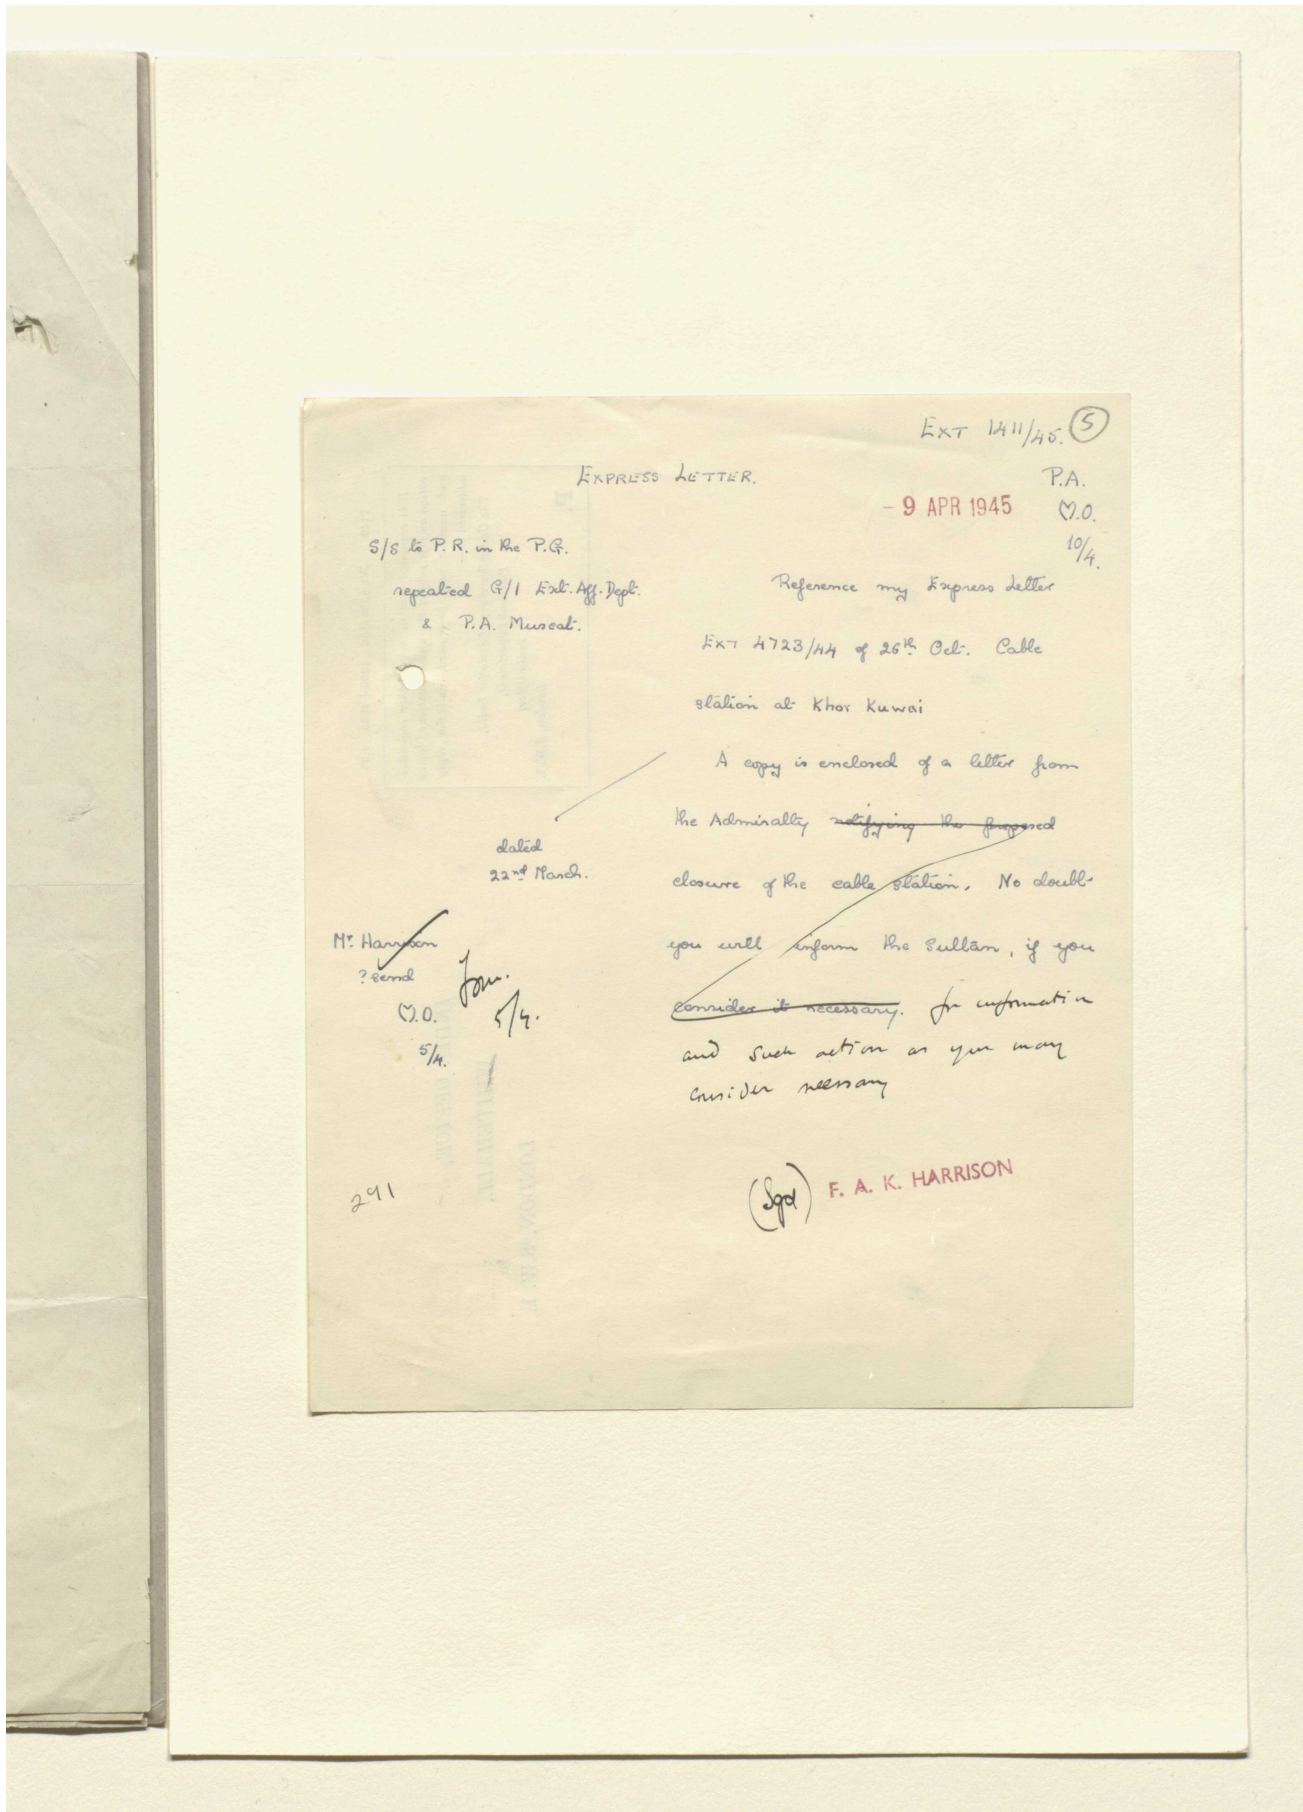 EXT 1411/45. 5
EXPRESS LETTER.
P.A.
- 9 APR 1945
M.O.
10/4.
S/S to P.R. in the P.G.
repeated G/I Ext. Aff. Dept.
& P.A. Muscat.
Reference my Express Letter
EXT 4723/44 of 26th Oct. Cable
station at Khor Kuwai
A copy is enclosed of a letter from
the Admiralty notifying the proposed
dated
22nd March.
closure of the cable station. No doubt
you will inform the Sultan, if you
consider it necessary. for information
and such action as you may
consider necessary
Mr Harrison
? send
M.O.
5/4.
5/4.
(Sgd) F. A. K. HARRISON
291
LONDON, S.W.1.